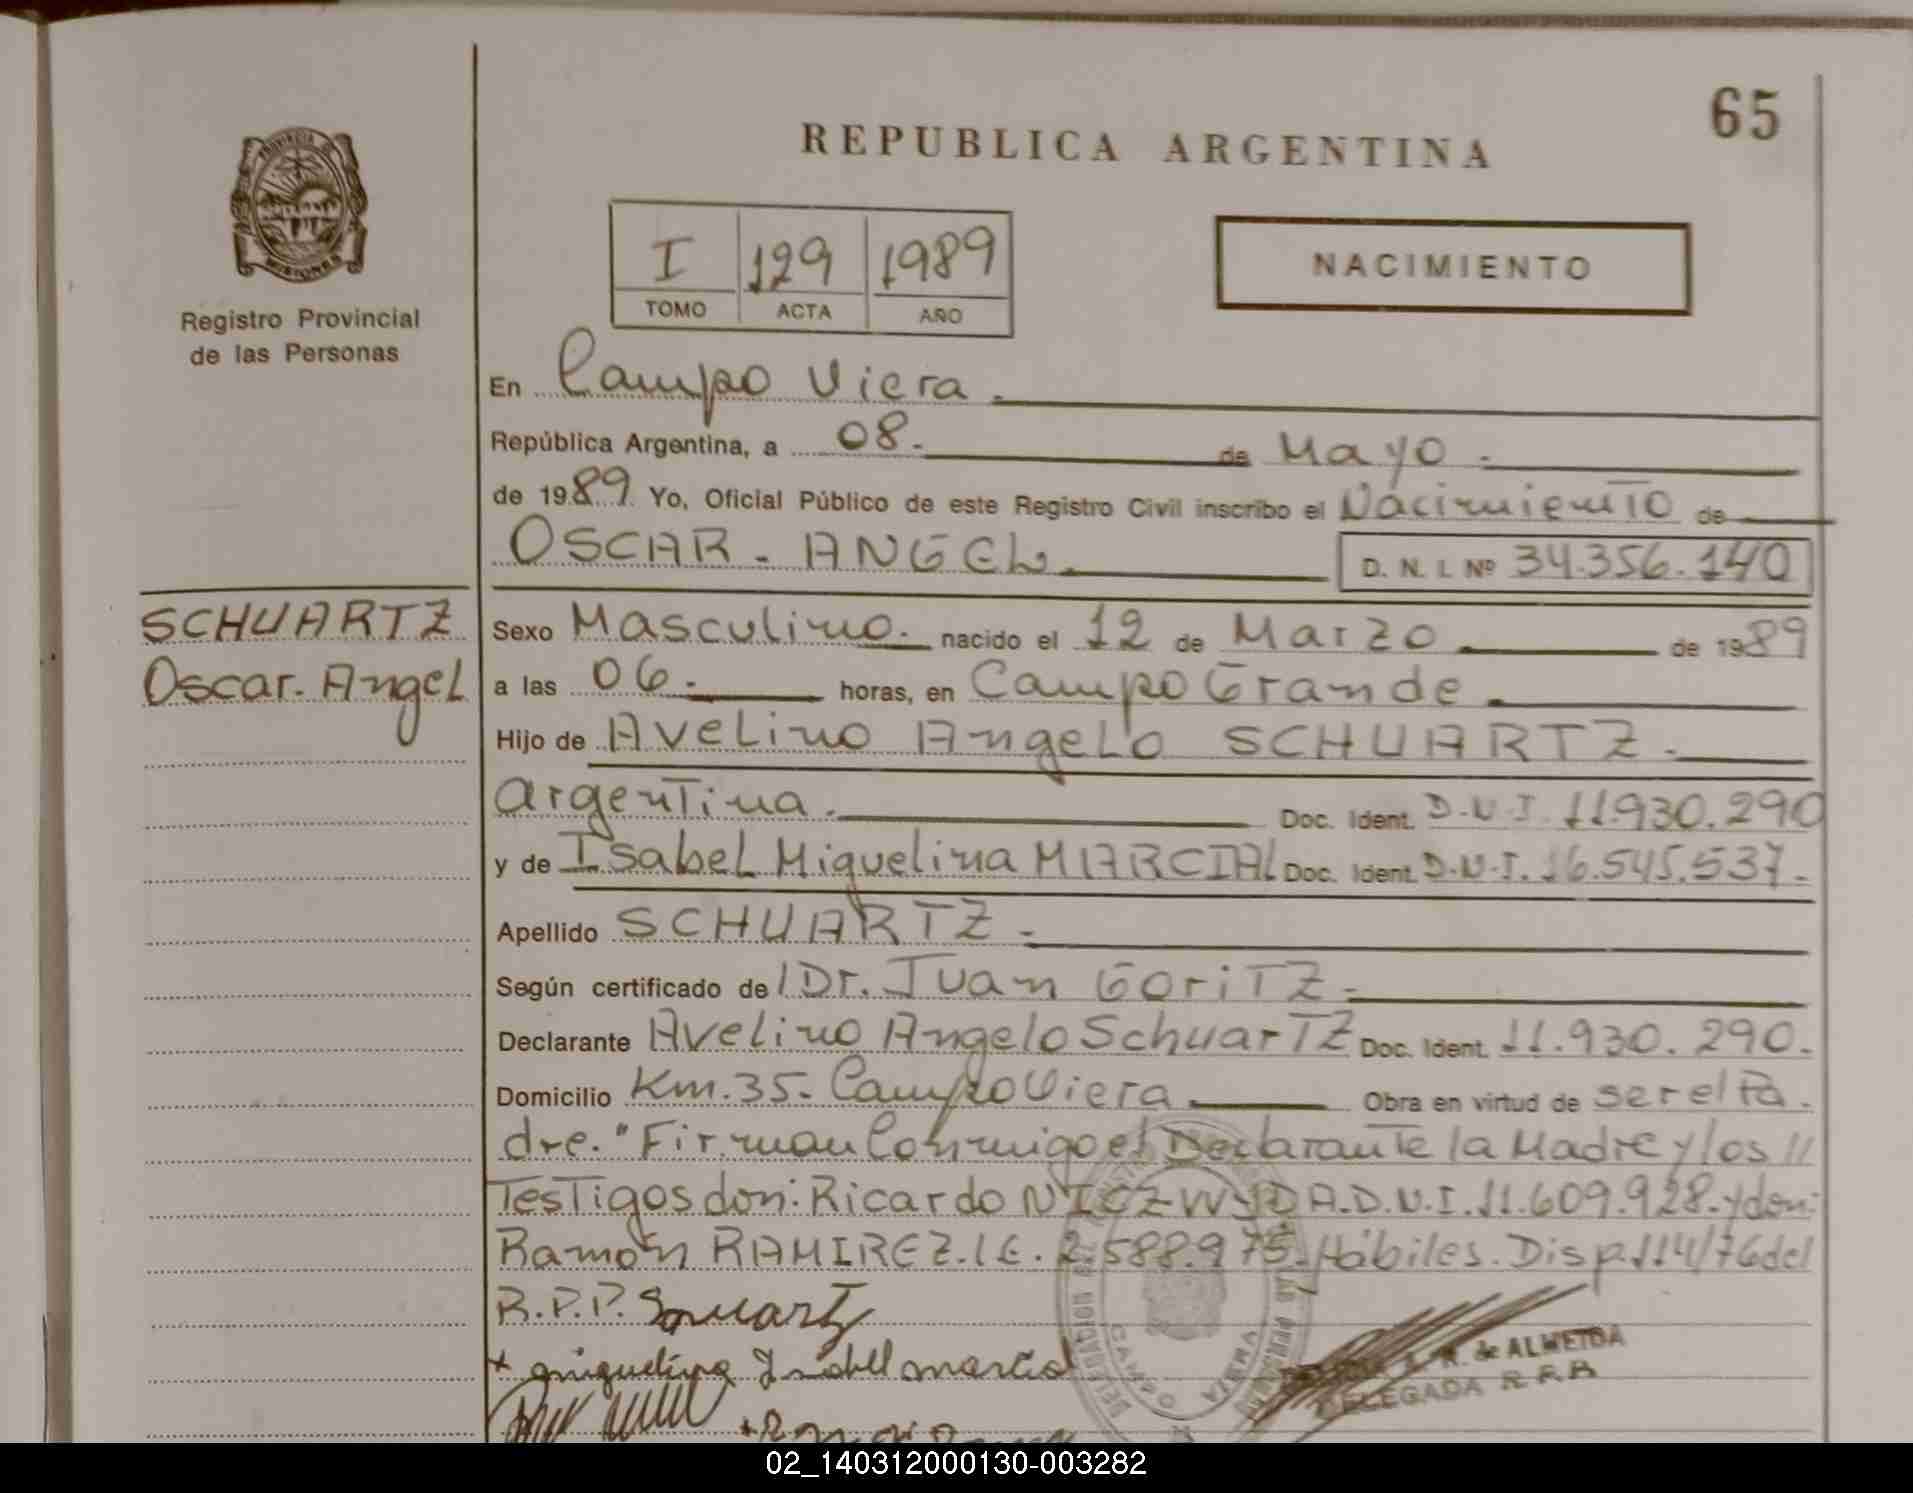 65
REPUBLICA ARGENTINA
PROVINCIA DE
MISIONES
Registro Provincial
de las Personas
I 129 1989
TOMO ACTA AÑO
NACIMIENTO
En Campo Viera.
República Argentina, a 08. de Mayo.
de 1989. Yo, Oficial Público de este Registro Civil inscribo el Nacimiento de
OSCAR - ANGEL. D. N. I. Nº 34.356.140
SCHUARTZ
Oscar. Angel
Sexo Masculino. nacido el 12 de Marzo de 1989
a las 06. horas, en Campo Grande.
Hijo de Avelino Angelo SCHUARTZ.
argentina. Doc. Ident. D.N.I. 11.930.290
y de Isabel Miguelina MARCIAL Doc. Ident. D.N.I. 16.545.537.
Apellido SCHUARTZ.
Según certificado de Dr. Juan GoriTZ.
Declarante Avelino Angelo SchuarTZ Doc. Ident. 11.930.290.
Domicilio Km. 35. Campo Viera Obra en virtud de ser el Pa.
dre. "Firman Conmigo el Declarante la Madre y los //
Testigos don: Ricardo A. D.N.I. 11.609.928. y don:
Ramón RAMIREZ. I.E. 2.588.975. Hábiles. Disp. 114/76 del
R.P.P. Schuartz
+ Miguelina Isabel Marcial
DELEGACION CAMPO VIERA
de ALMEIDA
DELEGADA R.P.P.
02_140312000130-003282